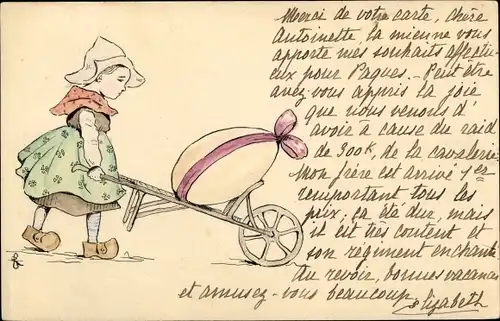 Merci de votre carte, chère
Antoinette la mienne vous
apporte mes souhaits affectu-
eux pour Pâques. - Peut être
avez vous appris la joie
que nous venons d'
avoir à cause du raid
de 300K, de la cavalerie
Mon frère est arrivé 1er
remportant tous les
prix; ça été dur, mais
il est très content et
son régiment enchanté
Au revoir, bonnes vacances
et amusez-vous beaucoup
Elizabeth